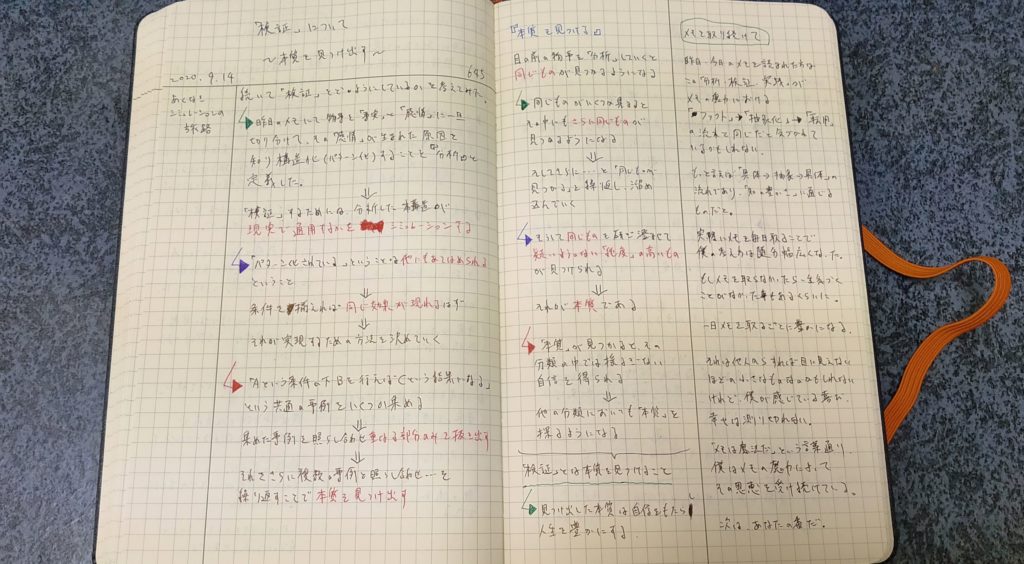 「検証」について
～本質を見つけ出す～
2020.9.14
645
あくなき
シミュレーションの
旅路
続いて「検証」をどのようにしているのかを考えてみた。
昨日のメモにて物事を「事実」と「感情」に一旦
切り分けて、その「感情」が生まれた原因を
知り構造化(パターン化)することを『分析』と
定義した。
⇓
「検証」するためには、分析した構造が
現実で通用するかをシミュレーションする
「パターン化されている」ということは他にもあてはめられる
ということ
条件を揃えれば同じ効果が現れるはず
⇓
それが実現するための方法を決めていく
「Aという条件の下Bを行えばCという結果になる」
という共通の事例をいくつか集める
集めた事例を照らし合わせ重なる部分のみを抜き出す
⇓
それでさらに複数の事例を照らし合わせ…を
繰り返すことで本質を見つけ出す
『本質を見つける』
目の前の物事を「分析」していくと
同じものが見つかるようになる
同じものがいくつか集まると
その中にもさらに同じものが
見つかるようになる
⇓
そしてさらに……と「同じものが
見つかる」を繰り返し、溜め
込んでいく
そうして同じものを研ぎ澄ませて
疑いようのない「純度」の高いもの
が見つけられる
⇓
それが本質である
「本質」が見つかると、その
分類の中では揺るぎない
自信を得られる
⇓
他の分類においても「本質」を
探るようになる
「検証」とは本質を見つけること
見つけ出した本質は自信をもたらし
人生を豊かにする
メモを取り続けて
昨日・今日のメモを読まれた方は
この「分析・検証・実践」が
メモの魔力における
「ファクト」→「抽象化」→「転用」
の流れと同じだと気づかれて
いるかもしれない。
もっと言えば「具体→抽象→具体」の
流れであり、「知の整い」に通じる
ものだと。
実際にメモを毎日取ることで
僕の考え方は随分幅広くなった。
もしメモを取らなかったら一生気づく
ことがなかった事もあるくらいだ。
一日メモを取るごとに豊かになる。
それは他人からすれば目に見えない
ほどの小さなものなのかもしれない
けれど、僕が感じている豊かさ、
幸せは測り切れない。
「メモは魔法だ」という言葉通り
僕はメモの魔力によって
その恩恵を受け続けている。
次は、あなたの番だ。